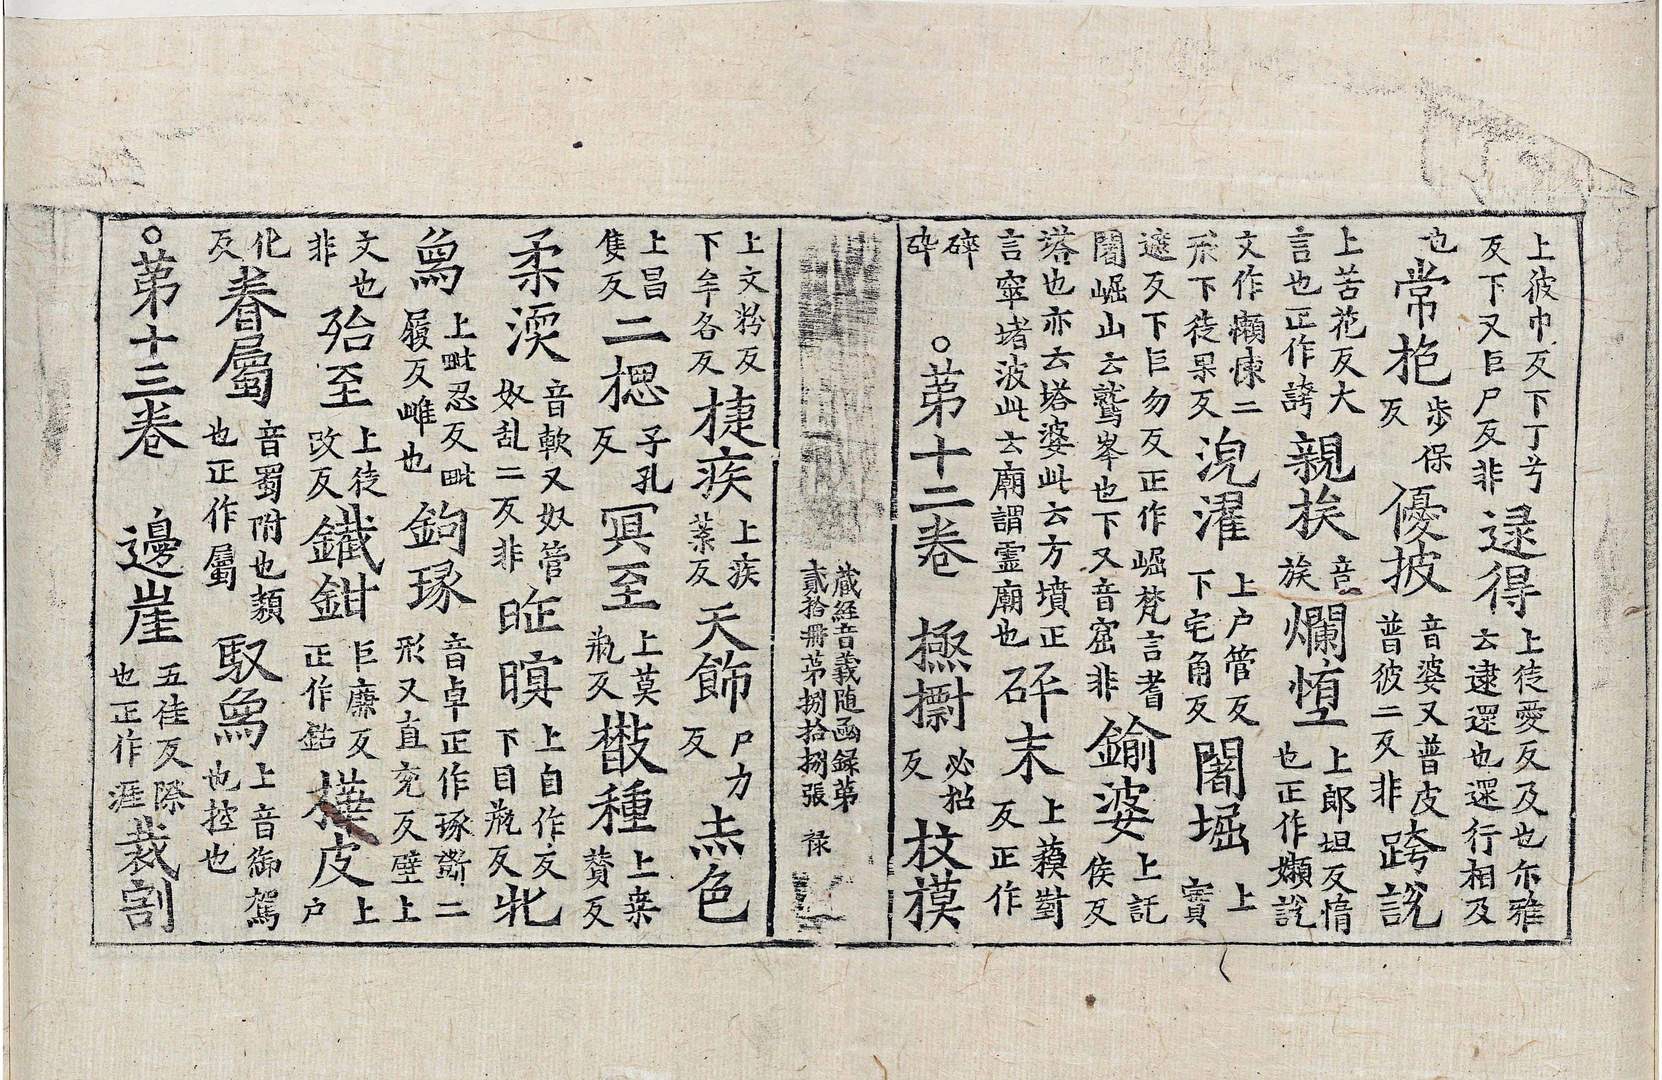 上彼巾反下丁兮反下又巨尸反非逯得上徒愛反及也尓雅云逮還也還行相及
也常抱步保反優披音婆又普皮普彼二反非跨說
上苦花反大言也正作誇親挨音族爛墯上郎坦反惰也正作嬾說
文作懶悚二形下徒果反涀濯上户管反下宅角反闍堀上
遮反下巨勿反正作崛梵言耆闍崛山云鷲峯也下又音窟非鍮婆上託侯反
塔也亦云塔婆此云方墳正言窣堵波此云廟謂霊廟也砕末上蘓對反正作
碎砕
○第十二卷必招反枝摸
藏經音義随函録第貳拾冊第捌拾捌張 禄
上文粉反下牟各反捷疾上疾葉反天飾尸力反点色
上昌隻反二摠子孔反冥至上莫瓶反種上桒賛反
柔渜音軟又奴管奴乱二反非昨暝上自作反下目瓶反牝
爲上毗忍反毗履反雌也鉤琢音卓正作琢斵二形又直兖反壁上
文也非殆至上徒改反鐵鉗巨廉反正作鉆樺皮上户
化反眷屬音蜀附也類也正作屬馭爲上音御駕也控也
○第十三卷 邊崖五佳反際也正作涯裁割